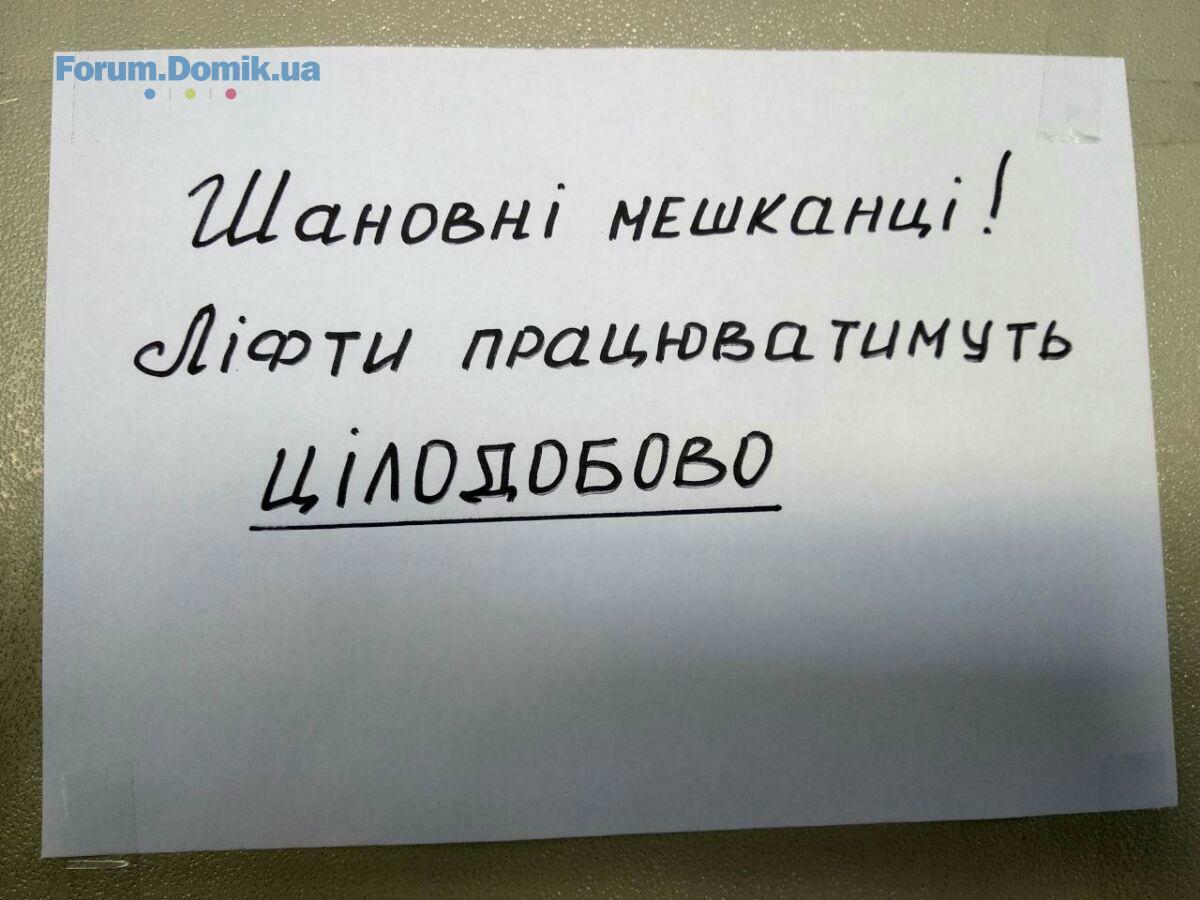 Forum.Domik.ua
Шановні мешканці!
Ліфти працюватимуть
ЦІЛОДОБОВО